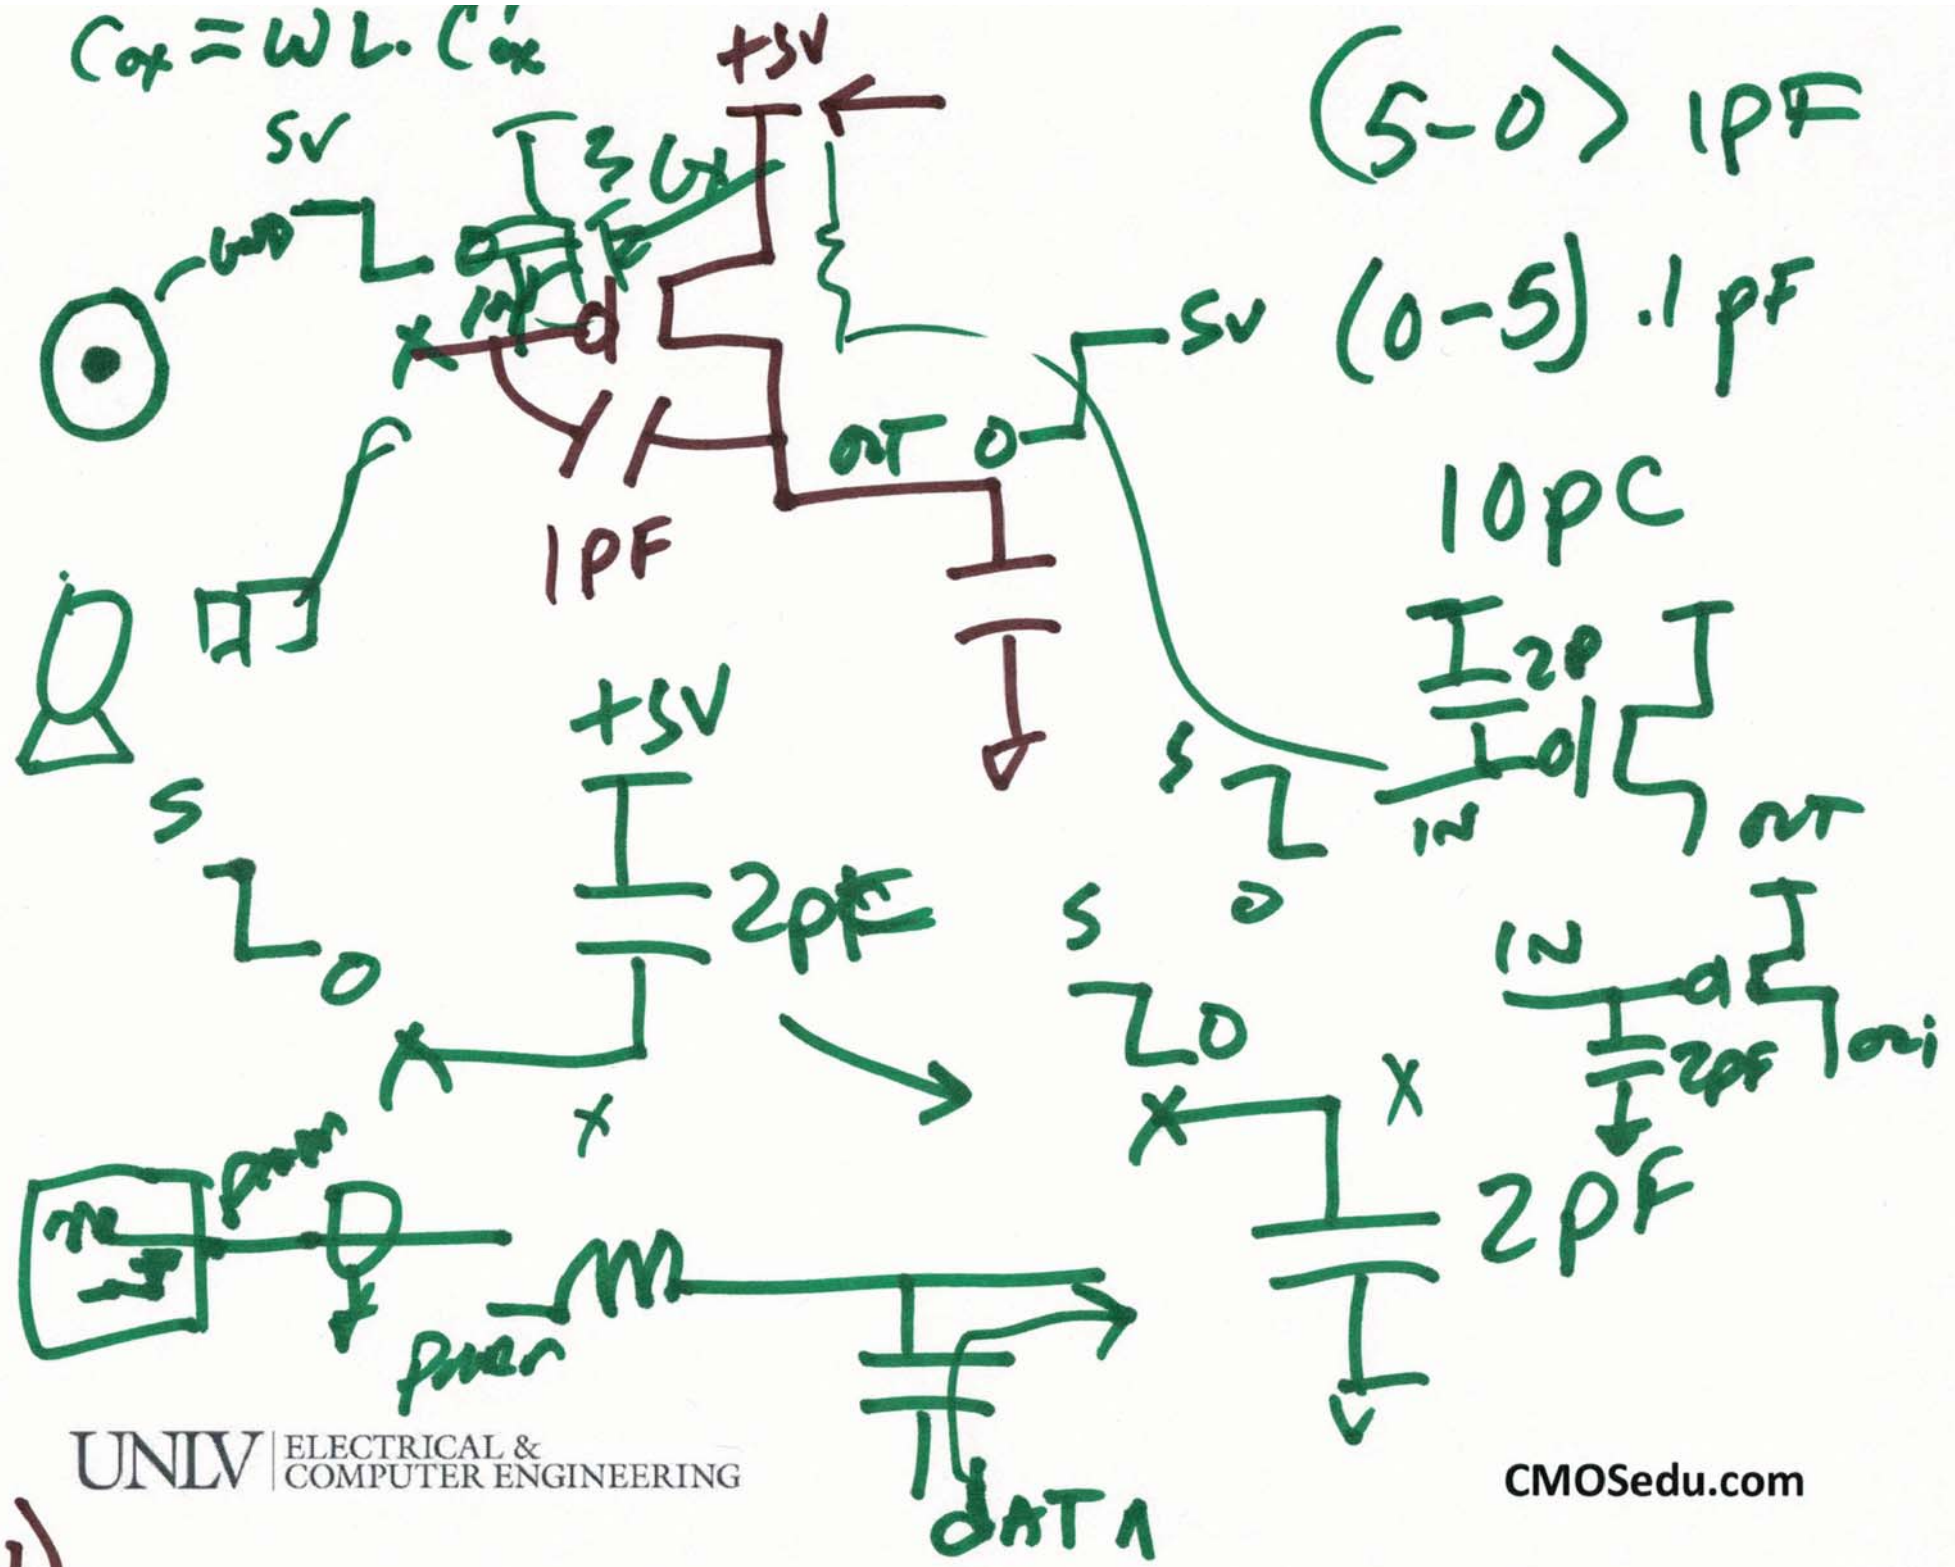 Cox = WL. C'ox
+5V
(5-0) 1pF
5V
(0-5) .1 pF
5V
IN
OUT 0
10pC
1PF
2P
+5V
5
IN
OUT
0
5
2pF
5
0
IN
0
2pF
X
X
X
2pF
power
power
UNLV ELECTRICAL &
COMPUTER ENGINEERING
CMOSedu.com
DATA